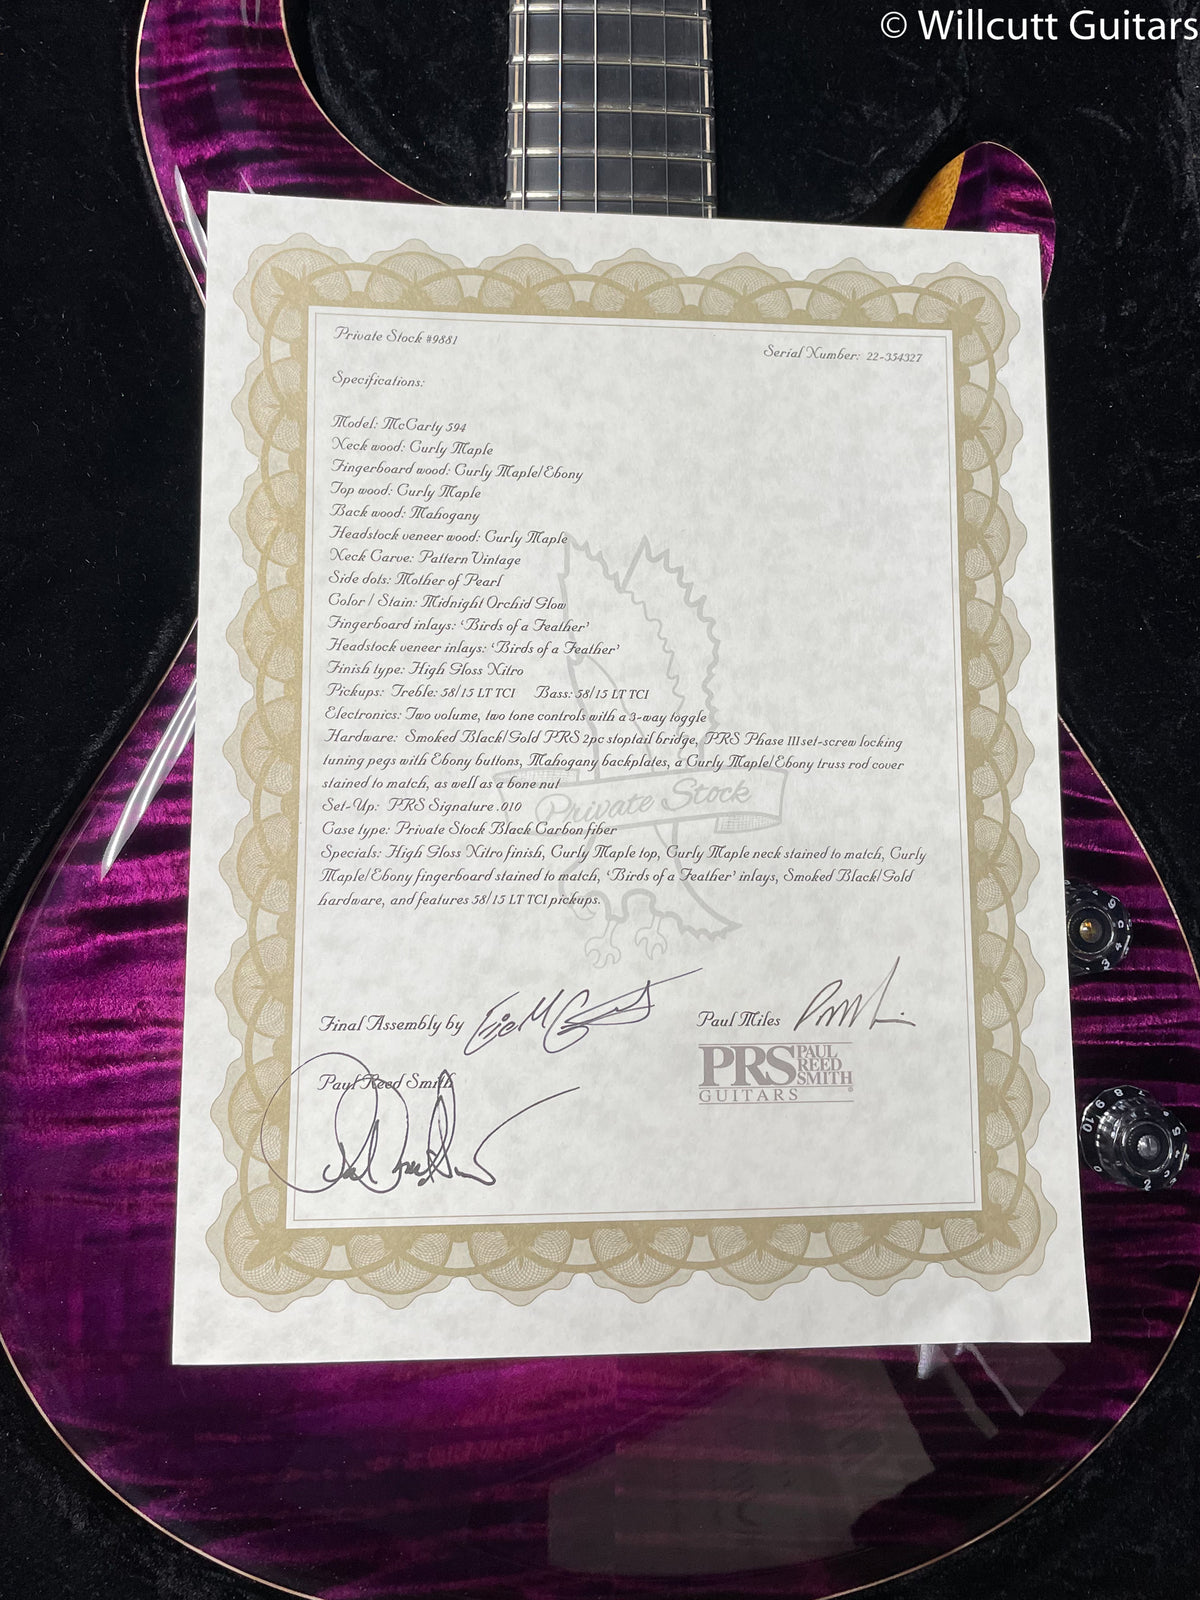 © Willcutt Guitars
Private Stock #9881
Serial Number: 22-354327
Specifications:
Model: McCarty 594
Neck wood: Curly Maple
Fingerboard wood: Curly Maple/Ebony
Top wood: Curly Maple
Back wood: Mahogany
Headstock veneer wood: Curly Maple
Neck Carve: Pattern Vintage
Side dots: Mother of Pearl
Color / Stain: Midnight Orchid Glow
Fingerboard inlays: 'Birds of a Feather'
Headstock veneer inlays: 'Birds of a Feather'
Finish type: High Gloss Nitro
Pickups: Treble: 58/15 LT TCI Bass: 58/15 LT TCI
Electronics: Two volume, two tone controls with a 3-way toggle
Hardware: Smoked Black/Gold PRS 2pc stoptail bridge, PRS Phase III set-screw locking
tuning pegs with Ebony buttons, Mahogany backplates, a Curly Maple/Ebony truss rod cover
stained to match, as well as a bone nut
Private Stock
Set-Up: PRS Signature .010
Case type: Private Stock Black Carbon fiber
Specials: High Gloss Nitro finish, Curly Maple top, Curly Maple neck stained to match, Curly
Maple/Ebony fingerboard stained to match, 'Birds of a Feather' inlays, Smoked Black/Gold
hardware, and features 58/15 LT TCI pickups.
Final Assembly by
Paul Miles
PRS PAUL REED SMITH
GUITARS
Paul Reed Smith